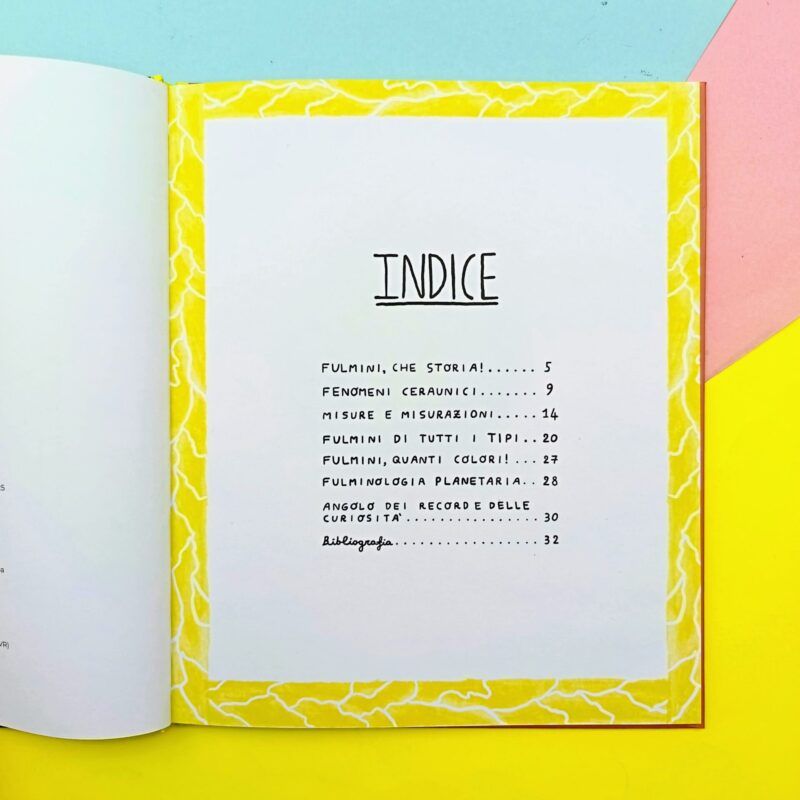 INDICE
FULMINI, CHE STORIA!...... 5
FENOMENI CERAUNICI....... 9
MISURE E MISURAZIONI..... 14
FULMINI DI TUTTI I TIPI.. 20
FULMINI, QUANTI COLORI! ... 27
FULMINOLOGIA PLANETARIA.. 28
ANGOLO DEI RECORD E DELLE
CURIOSITA'................ 30
Bibliografia................. 32